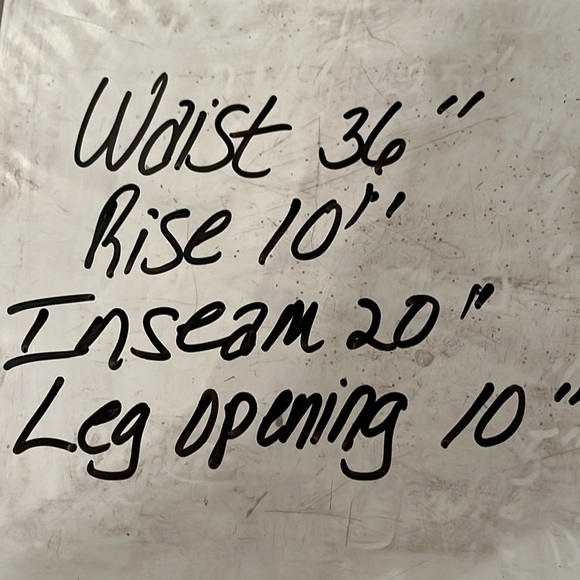 Waist 36"
Rise 10"
Inseam 20"
Leg opening 10"